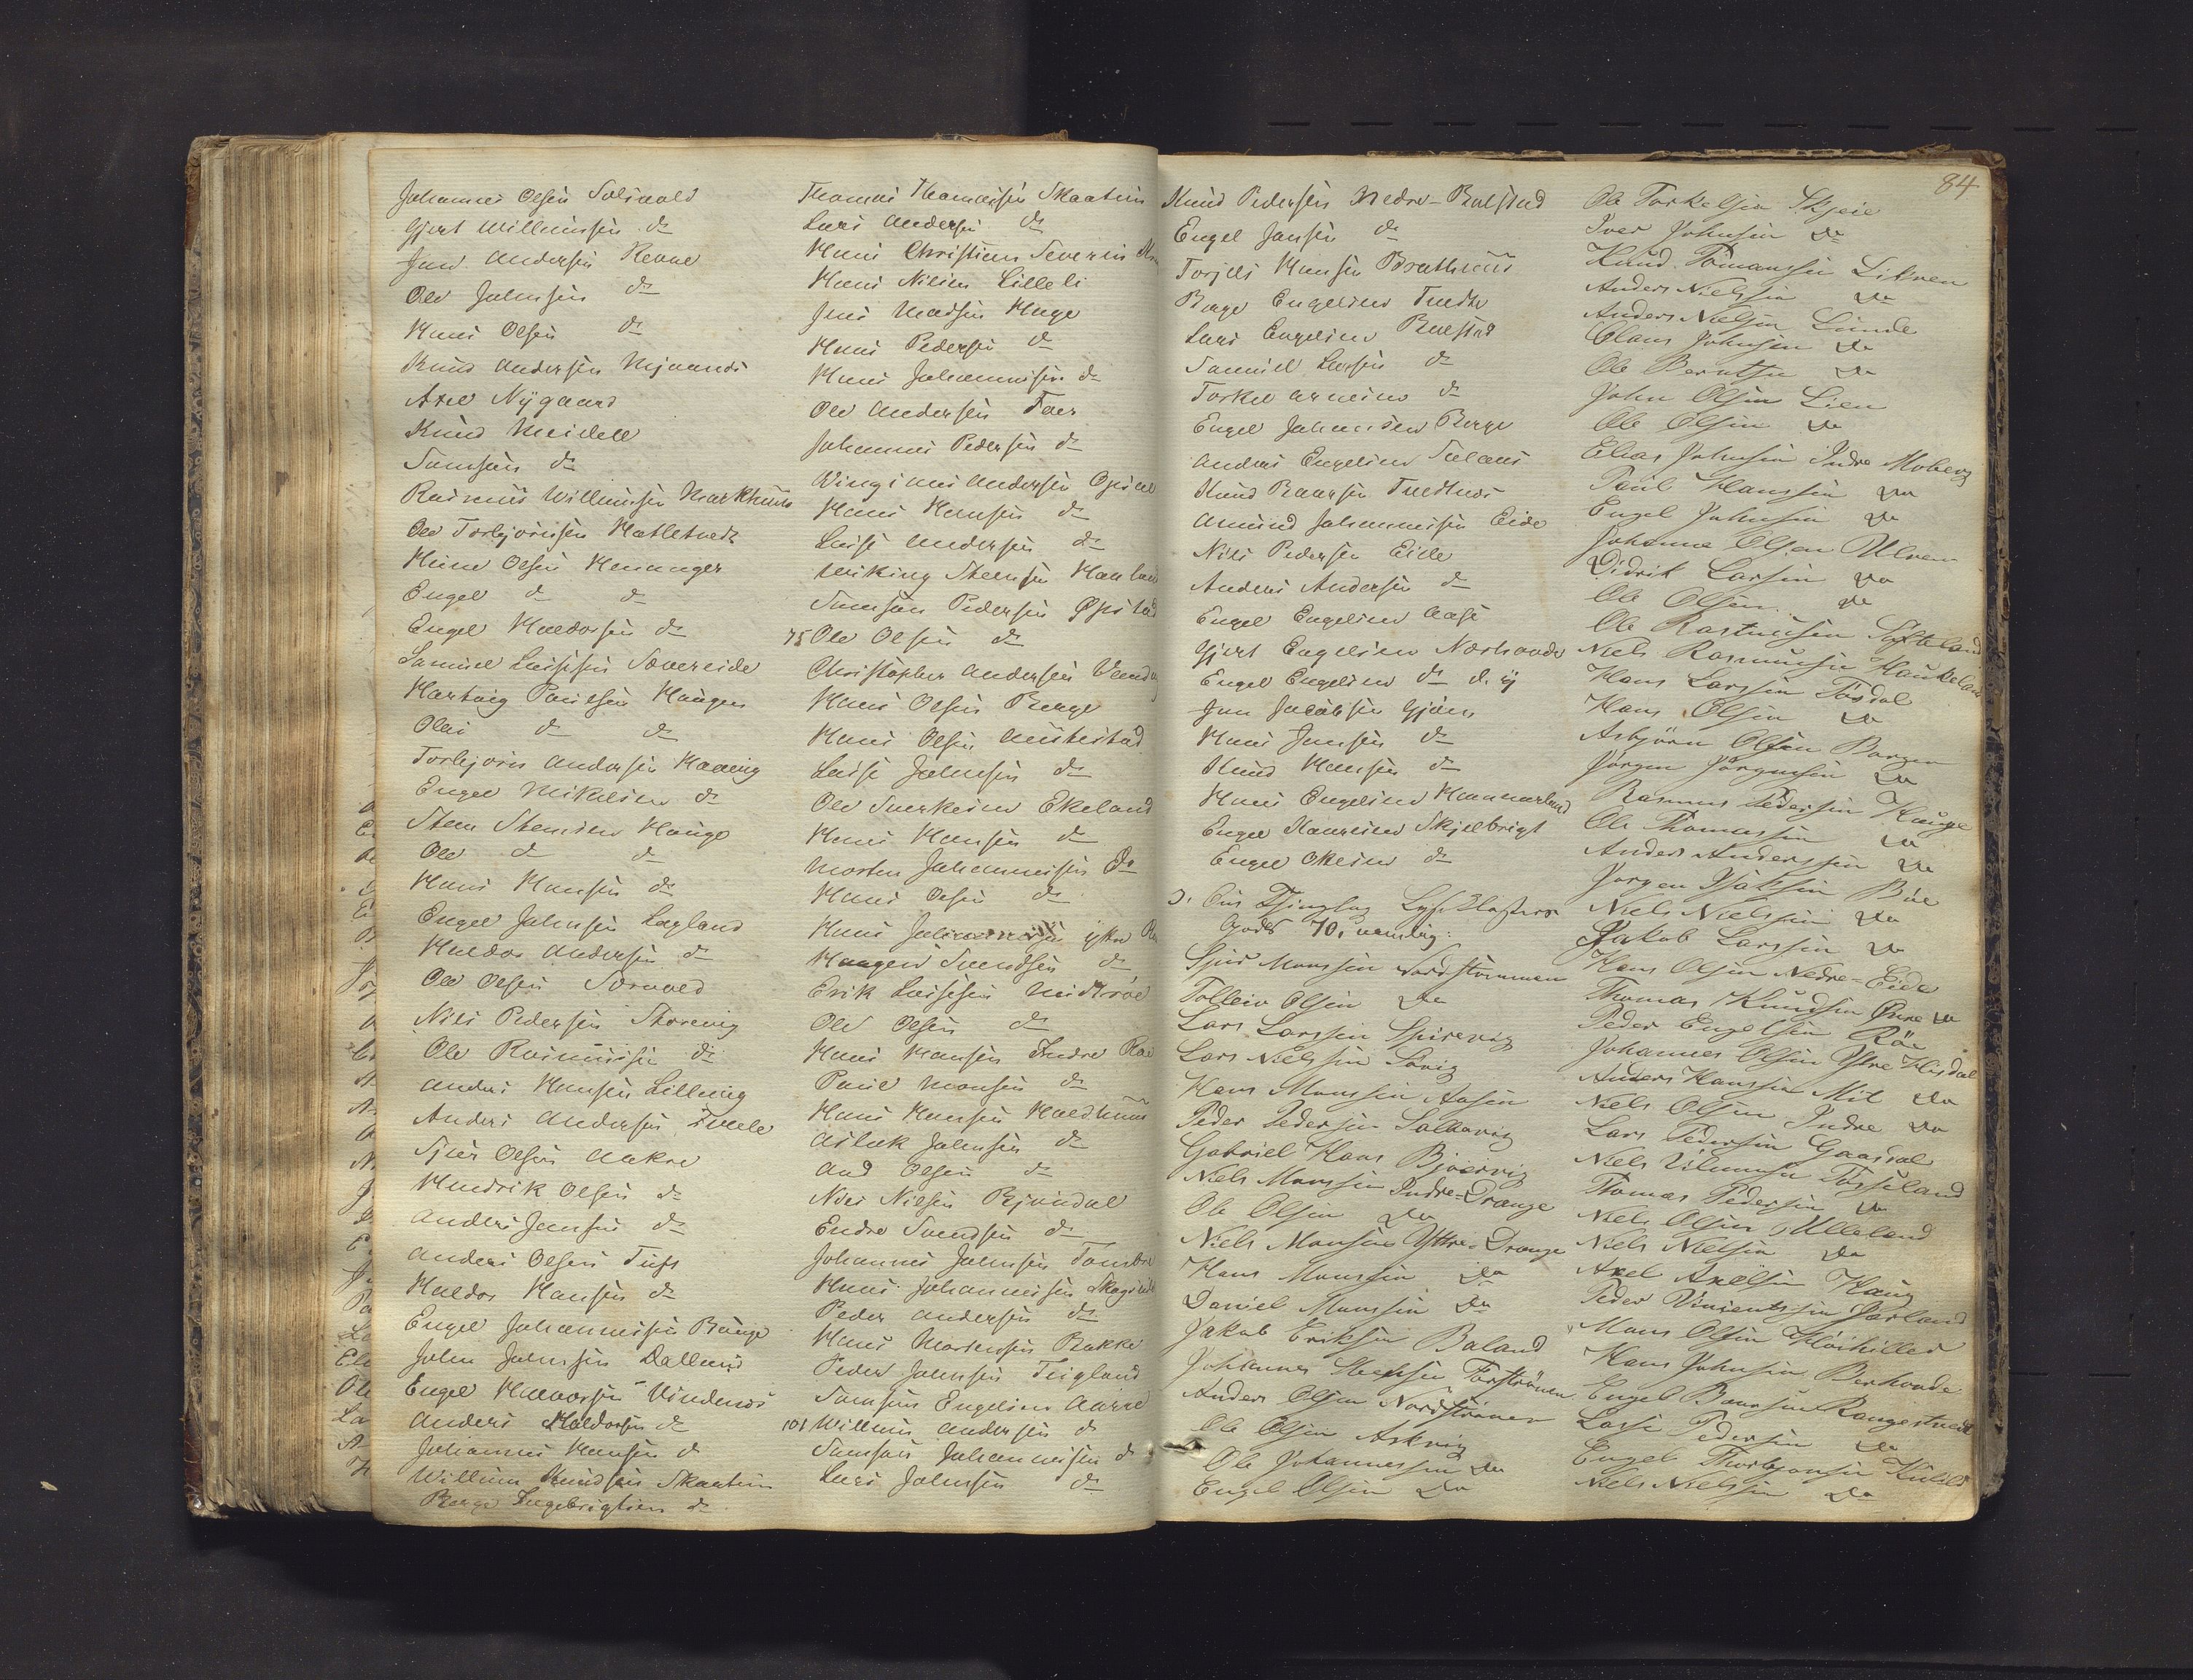 Johannes Olsen Solsvold
Gjert Willumsen do
Jan Andersen Revne
Ole Johnsen do
Hans Olsen do
Knud Andersen Mjaanæs
Axel Nygaard
Knud Meidell
Samson do
Rasmus Willumsen Markhuus
Ole Torbjørnsen Hatletvedt
Hans Olsen Henanger
Engel do do
Engel Haldorsen do
Samuel Lassesen Sævereide
Hartvig Poulsen Haugen
Olai do do
Torbjørn Andersen Haavig
Engel Mikelsen do
Steen Steensen Hauge
Ole do do
Hans Hansen do
Engel Johnsen Løgland
Haldor Andersen do
Ole Olsen Sørvold
Nils Pedersen Storevig
Ole Rasmussen do
Anders Hansen Lillevig
Anders Andersen Tvele
Sjur Olsen Aakre
Hendrik Olsen do
Anders Jansen do
Anders Olsen Tuft
Haldor Hansen do
Engel Johannesen Bauge
John Johnsen Dallund
Engel Haldorsen Vindenæs
Anders Haldorsen do
Johannes Hansen do
Willum Knudsen Skaatun
Berge Ingebrigtsen do
Thomas Thomassen Skaatun
Lars Andersen do
Hans Christian Severin
Hans Nilsen Lilleli
Jens Madsen Hage
Hans Pedersen do
Hans Johannesen do
Ole Andersen Toer
Johannes Pedersen do
Vingians Andersen Opsal
Hans Hansen do
Lasse Andersen do
Viking Steensen Hauland
Samson Pedersen Opstad
75 Ole Olsen do
Christopher Andersen
Hans Olsen Berge
Hans Olsen Austestad
Lasse Johnsen do
Ole Sverkesen Ekeland
Hans Hansen do
Morten Johannesen do
Hans Olsen do
Hans Johannesen ytre
Haagen Svendsen do
Erik Lassesen Midtrøe
Ole Olsen do
Hans Hansen Indre
Poul Monsen do
Hans Hansen Holdhuus
Aslak Johnsen do
And Olsen do
Nils Nilsen Bjøndal
Endre Svendsen do
Johannes Johnsen Tombre
Hans Johannesen Skogseide
Peder Andersen do
Hans Mortensen Bakke
Peder Johnsen Teigland
Samson Engelsen Aarre
101 Willum Andersen do
Samson Johannesen do
Lars Johnsen do
Knud Pedersen Nedre-Bolstad
Engel Jansen do
Torjels Hansen Brathuus
Berge Engelsen Tvedte
Lars Engelsen Bolstad
Samuel Larsen do
Torkel Arnesen do
Engel Johannesen Berge
Anders Engelsen
Knud Baarsen Tvedtnæs
Amund Johannesen Eide
Nils Pedersen Eide
Anders Andersen do
Engel Engelsen Aase
Gjert Engelsen Nordhovde
Engel Engelsen do d. y
Jan Jacobsen Gjøn
Hans Jansen do
Knud Hansen do
Hans Engelsen Hammerland
Engel Haaversen Skjelbrigt
Engel Okesen do
3. Ous Thinglag Lyseklosters
Gods 70, nemlig:
Sjur Monssen Nordstrømmen
Tolleiv Olsen do
Lars Larssen Spirevig
Lars Nielssen Sørvig
Hans Monssen Aasen
Peder Pedersen Soltvevig
Gabriel Hans Bjørvig
Niels Monssen Indre-Drange
Ole Olsen do
Niels Monsen Yttre-Drange
Hans Monssen do
Daniel Monssen do
Jakob Eriksen Baland
Johannes Steffen Førstrønen
Anders Olsen Nordstrønen
Ole Olsen Askvig
Ole Johannessen do
Engel Olsen do
84
Ole Torkelsen Skjeie
Iver Johnsen do
Knud Tomassen Likven
Anders Nielssen do
Anders Nielsen Lunde
Claus Johnsen do
Ole Berntsen do
John Olsen Lien
Ole Olsen do
Elias Johnsen Indre Moberg
Poul Hanssen do
Engel Johnsen do
Johanne Olsen Ulven
Didrik Larsen do
Ole Olsen do
Ole Rasmussen Syfteland
Niels Rasmussen Haukeland
Hans Larssen Tøsdal
Hans Olsen do
Asbjørn Olsen Borgen
Jørgen Jørgensen do
Rasmus Pedersen Hauge
Ole Thomassen do
Anders Anderssen do
Jørgen Isaksen Bøe
Niels Nielssen do
Jakob Larssen do
Hans Olsen Nedre-Eide
Thomas Knudsen Øvre do
Peder Engelsen Røe
Johannes Olsen Ytre Hisdal
Anders Hanssen Mit do
Niels Olsen Indre do
Lars Pedersen Gaasdal
Niels Vilumsen Tøsseland
Thomas Pedersen do
Niels Olsen Ulleland
Niels Nielsen do
Axel Axelsen Haug
Peder Vincentssen Jarland
Mons Olsen Kløihiller
Hans Johnsen Berhovde
Engel Baarsen Rangestveit
Lasse Pedersen do
Engel Thorbjønsen Kuhle
Niels Nielssen do